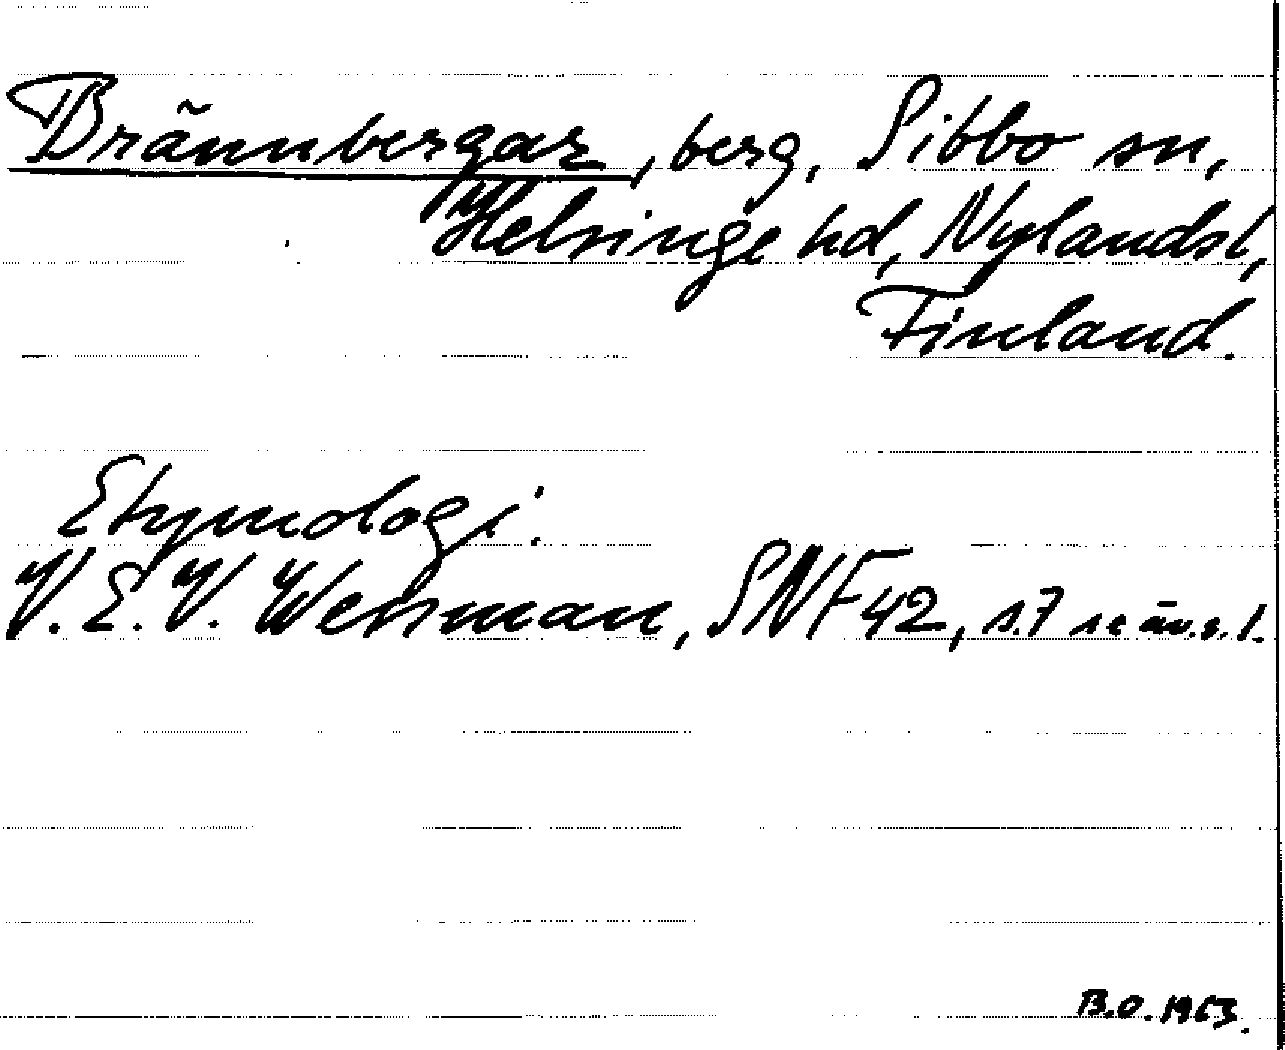 Brännbergar, berg, Sibbo sn,
Helsinge hd, Nylands l,
Finland.
Etymologi.
V. E. V. Wessman, SNF 42, s. 7 se äv. s. 1.
B.O. 1963.